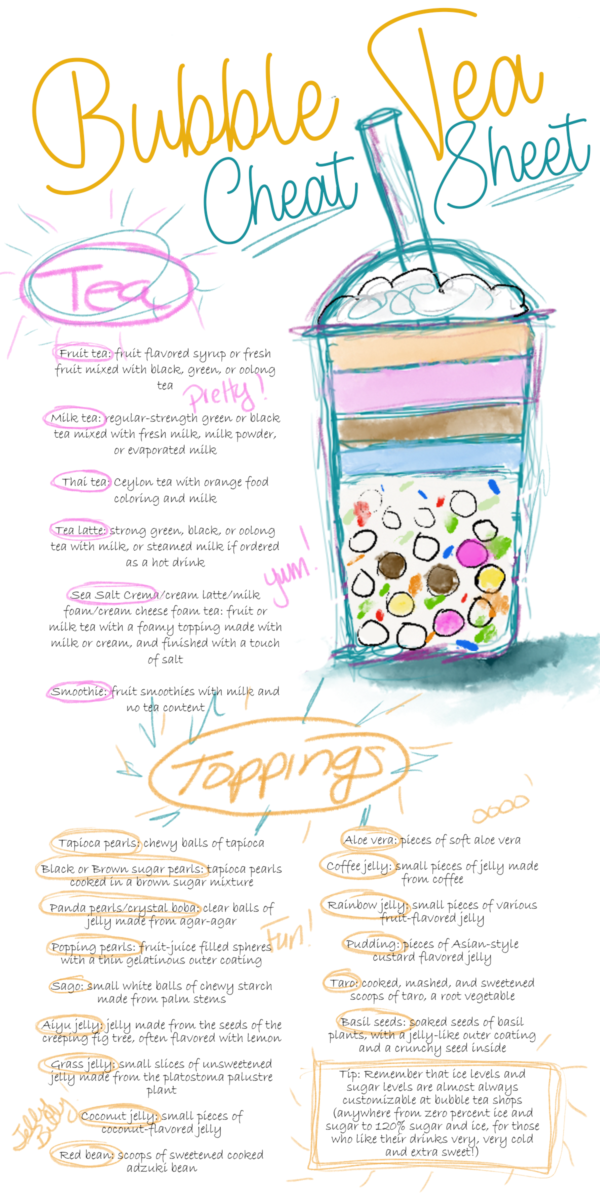 Bubble Tea
Cheat Sheet
Tea
Fruit tea: fruit flavored syrup or fresh
fruit mixed with black, green, or oolong
tea
pretty!
Milk tea: regular-strength green or black
tea mixed with fresh milk, milk powder,
or evaporated milk
Thai tea: Ceylon tea with orange food
coloring and milk
Tea latte: strong green, black, or oolong
tea with milk, or steamed milk if ordered
as a hot drink
yum!
Sea Salt Crema/cream latte/milk
foam/cream cheese foam tea: fruit or
milk tea with a foamy topping made with
milk or cream, and finished with a touch
of salt
Smoothie: fruit smoothies with milk and
no tea content
Toppings
oooo!
Tapioca pearls: chewy balls of tapioca
Black or Brown sugar pearls: tapioca pearls
cooked in a brown sugar mixture
Panda pearls/crystal boba: clear balls of
jelly made from agar-agar
Fun!
Popping pearls: fruit-juice filled spheres
with a thin gelatinous outer coating
Sago: small white balls of chewy starch
made from palm stems
Aiyu jelly: jelly made from the seeds of the
creeping fig tree, often flavored with lemon
Grass jelly: small slices of unsweetened
jelly made from the platostoma palustre
plant
Jelly
Belly!
Coconut jelly: small pieces of
coconut-flavored jelly
Red bean: scoops of sweetened cooked
adzuki bean
Aloe vera: pieces of soft aloe vera
Coffee jelly: small pieces of jelly made
from coffee
Rainbow jelly: small pieces of various
fruit-flavored jelly
Pudding: pieces of Asian-style
custard flavored jelly
Taro: cooked, mashed, and sweetened
scoops of taro, a root vegetable
Basil seeds: soaked seeds of basil
plants, with a jelly-like outer coating
and a crunchy seed inside
Tip: Remember that ice levels and
sugar levels are almost always
customizable at bubble tea shops
(anywhere from zero percent ice and
sugar to 120% sugar and ice, for those
who like their drinks very, very cold
and extra sweet!)